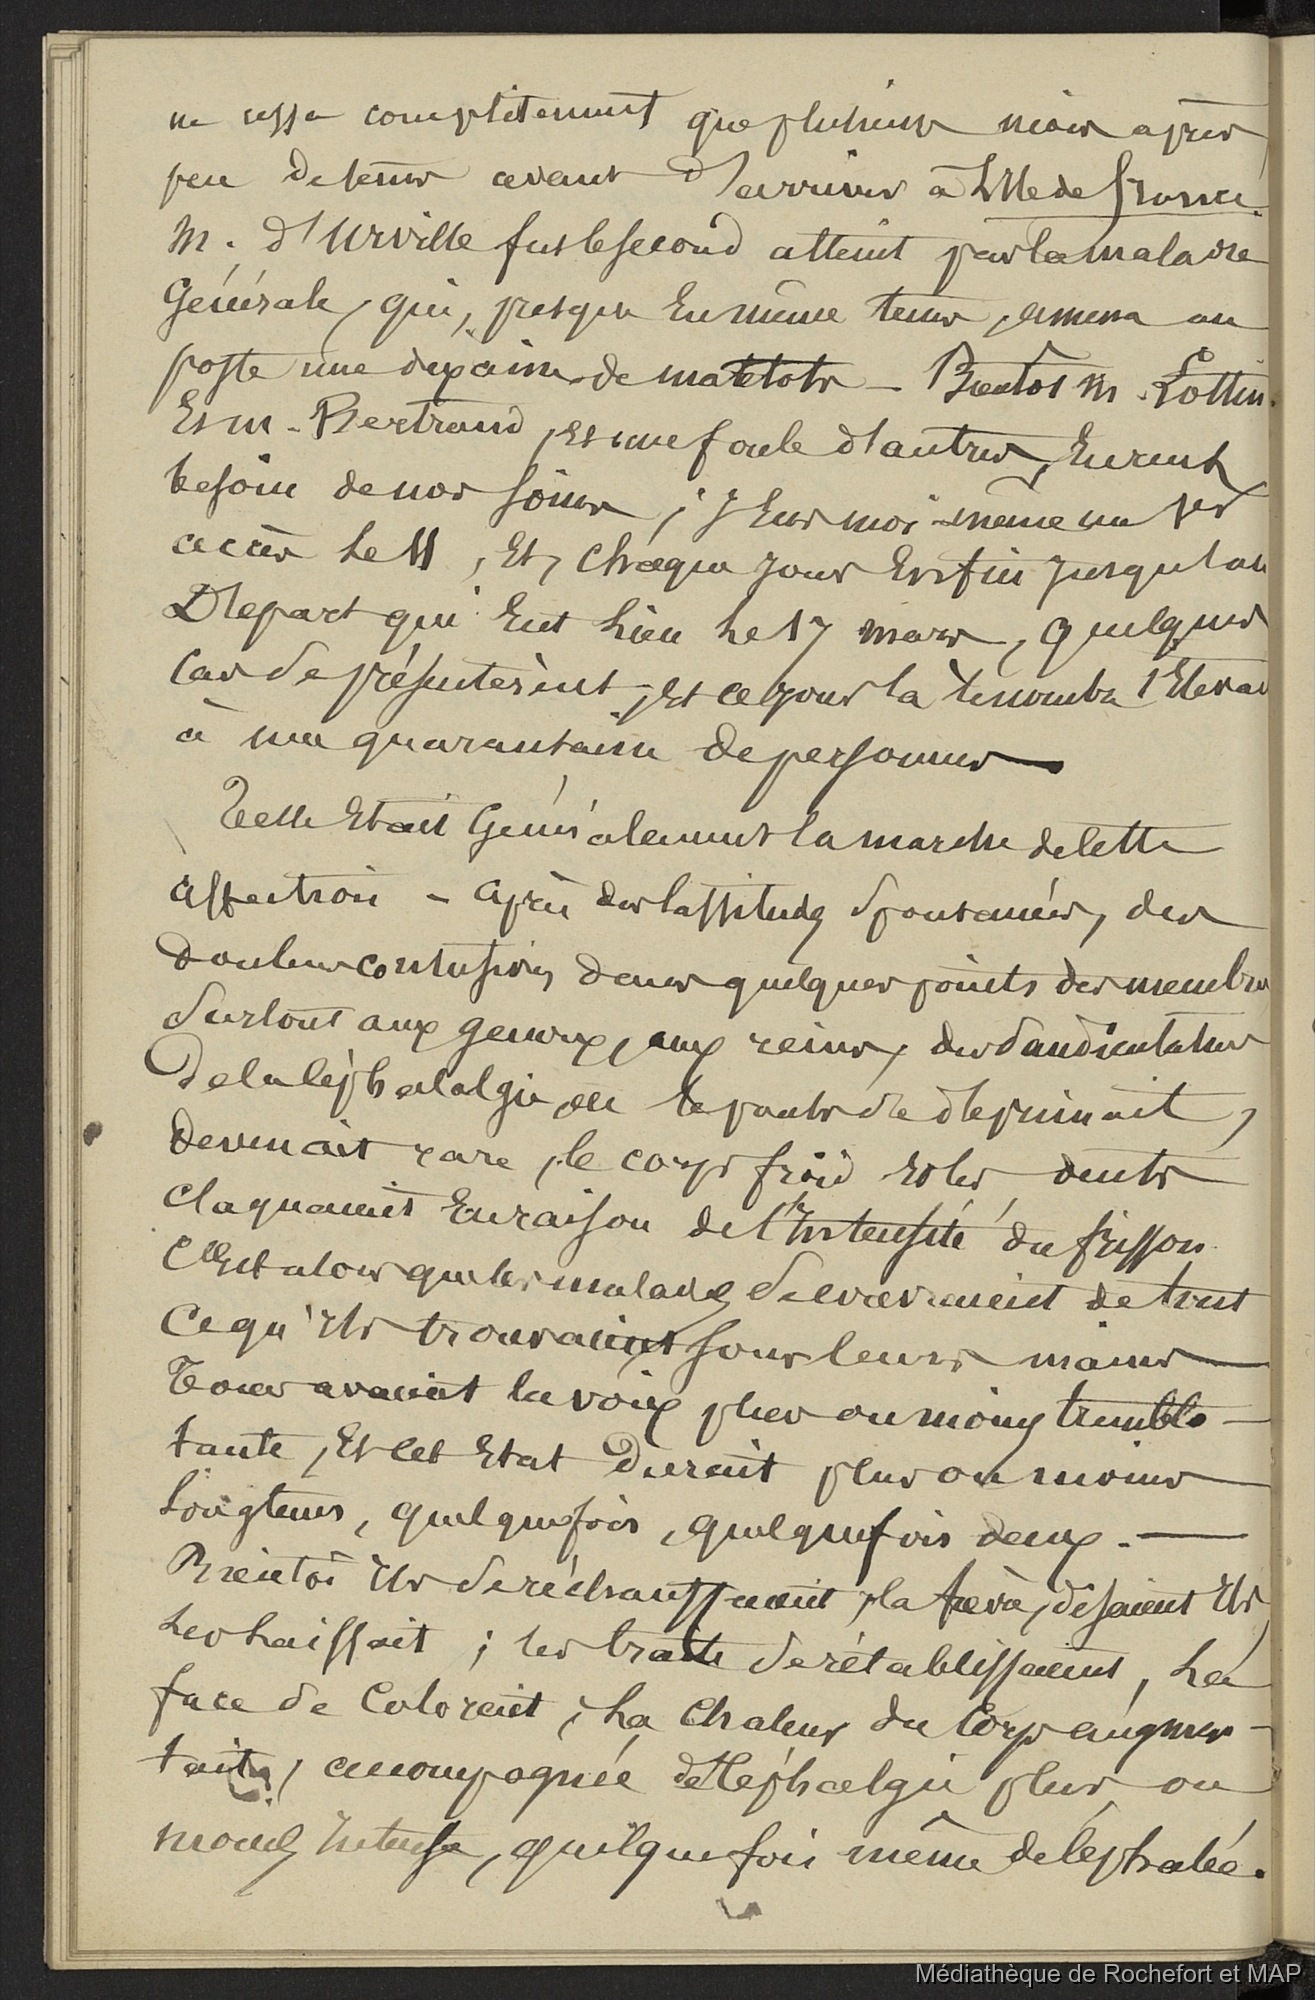 ne cessa complètement que plusieurs mois après
peu de tems avant d'arriver à L'Ile de france.
M. d'Urville fut le second atteint par la maladie
Générale, qui, presque En même tems, amena au
poste une dixaine de matelots - Bientôt M. Lottin.
Et M. Bertrand, Et une foule d'autres, Eurent
besoin de nos soins ; J'Eus moi-même un 1er
accès le 11, Et, chaque jour Enfin jusqu'au
Départ qui Eut lieu le 17 mars, quelques
cas se présentèrent, Et ce jour là le nombre s'Elevait
à une quarantaine de personnes —
Telle Etait Généralement la marche de cette
affection - après des lassitudes spontanées, des
douleurs contusives dans quelques points des membres
surtout aux genoux, aux reins, des pandiculations
de la céphalalgie, le pouls se déprimait,
devenait rare, le corps froid Et les dents
claquaient En raison de l'Intensité du frisson.
C'Est alors que les malades se couvraient de tout
ce qu'Ils trouvaient sous leurs mains —
Tous avaient la voix plus ou moins tremblo-
tante, Et cet Etat durait plus ou moins
longtems, quelquefois, quelquefois deux. —
Bientôt Ils se réchauffaient, la fièvre, disaient Ils
les haissait ; les traits se rétablissaient, La
face se Colorait, La chaleur du Corps augmen-
tait, accompagnée de Céphalgie plus ou
moins Intense, quelquefois même de Céphalée.
Médiathèque de Rochefort et MAP